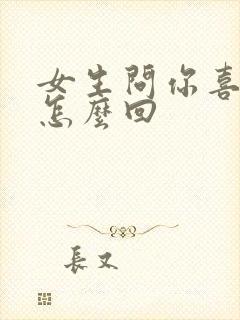 女生問你喜
怎麼回
長又